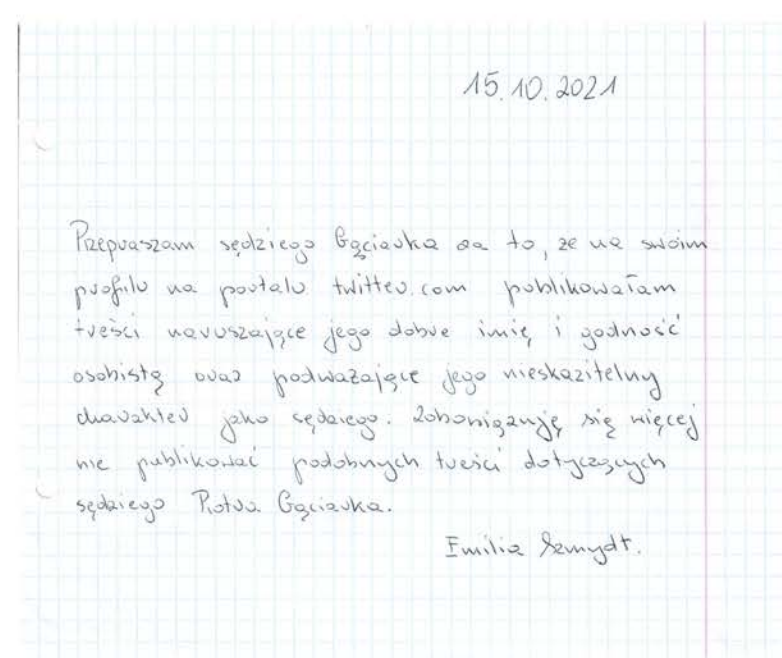 15.10.2021
Przepraszam sędziego Gąciarka za to, że na swoim
profilu na portalu twitter.com publikowałam
treści naruszające jego dobre imię i godność
osobistą oraz podważające jego nieskazitelny
charakter jako sędziego. Zobowiązuję się więcej
nie publikować podobnych treści dotyczących
sędziego Piotra Gąciarka.
Emilia Szmydt.